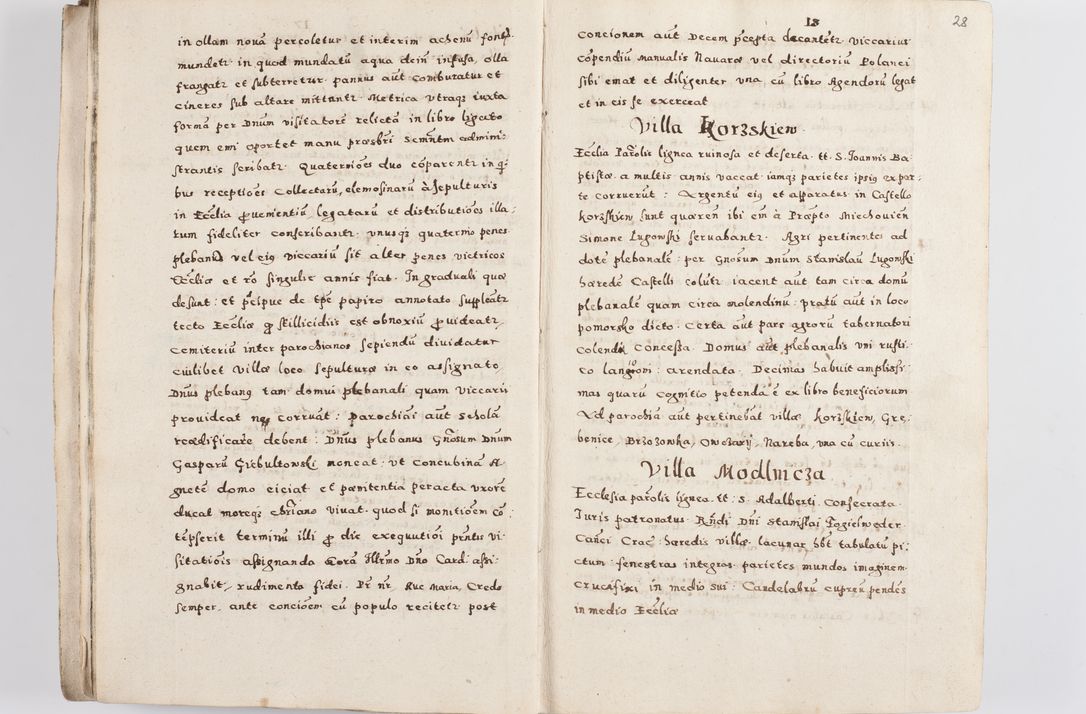 in ollam nouã percoletur et interim achenũ fonte
mundetr in quod mundatũ aqua dein infusa, olla
frangatr et subterretur pannus aũt comburatur et
cineres sub altare mittantr. Metrica vtraqȝ iuxta
formã per Dnum visitatorẽ relictã in libro ligato
quem emi oportet manu præsbri admini:
strantis scribatr. Quaterniões duo cõparentr in q̃:
bus receptiões collectarũ, elemosinarũ à sepulturis
in Eccĩia ꝓuenientiũ, legatarũ et distributiões illa:
rum fideliter conscribantr. vnusqȝ quaternio penes
plebanũ vel eiq viccariũ sit alter penes victricos
Ecclĩæ et rõ singulis annis fiat. In graduali quæ
desunt: et p̃cipue de tpẽ papiro annotato suppleatr
tecto Ecclĩæ ꝓ stillicidiis est obnoxiũ ꝓuideatr,
Cemiteriũ inter parochianos sepiendũ diuidatur
cuilibet villæ loco sepulturæ in eo assignato,
Dñus plebanq tam domui plebanali quam viccarii
prouideat corruãt: parochiãi aũt scholã
reædificare debent: Dñus plebanus Gñosum Dnum
Gasparũ Giebultowski moneat: vt concubinã A:
gnetẽ domo eiciat et pœnitentia peracta vxorẽ
ducat moreqȝ chriano viuat. quod si monitiõem cõ:
tẽpserit terminũ illi ꝓ die exequutiõi pr̃ntis vi:
sitatiõis assignanda corã Illr̃mo Dño Card: assi:
gnabit, rudimenta fidei. Pr̃ nr̃, Aue Maria, Credo
semper, ante conciõem cũ populo recitetr post
18
28
Concionem aũt Decem p̃cepta decantetr viccarius
cõpendiũ Manualis Nauaræ vel directoriũ Polanci
sibi emat et diligenter vna cũ libro Agendorũ legat
et in eis se exerceat
Villa Korzskiew
Ecclĩa Parolis lignea ruinosa et deserta. tt. S. Joannis Ba:
ptistæ a multis annis vaccat iamqȝ parietes ipsiq ex par:
te corruerũt: Argentũ eiq et apparatus in Castello
korzskiew sunt quæren̄ ibi em̃ à Præpto Miechouień
Simone Lugowski seruabantr. Agri pertinentes ad
dotẽ plebanalẽ: per Gnõsum Dnum Stanislaũ Lugowski
hæredẽ Castelli coluntr iacent aũt tam circa domũ
plebanalẽ quam circa molendinũ: pratũ aũt in loco
pomorsko dicto. Certa aũt pars agrorũ tabernatori
Colenda concessa. Domus aũt plebanalis vni rusti:
co arendata. Decimas habuit amplissi:
mas quarũ cognitio petenda ẽ ex libro beneficiorum.
Ad parochiã aũt pertinebãt villæ korzskiew, Grę:
benice, Brzozowka, Owczarÿ, Nareba, vna cũ curiis.
Villa Modlnicza
Ecclesia parolis lignea. tt: S. Adalberti. Consecrata.
Iuris patronatus. Rñdi Dni Stanislai
Cañci Crac: hæredis villæ. lacunar hb̃t tabulatũ pi:
ctum: fenestras integras parietes mundos imaginem
crucifixi in medio sui: Candelabrũ cupreũ pendẽs
in medio Ecclĩæ